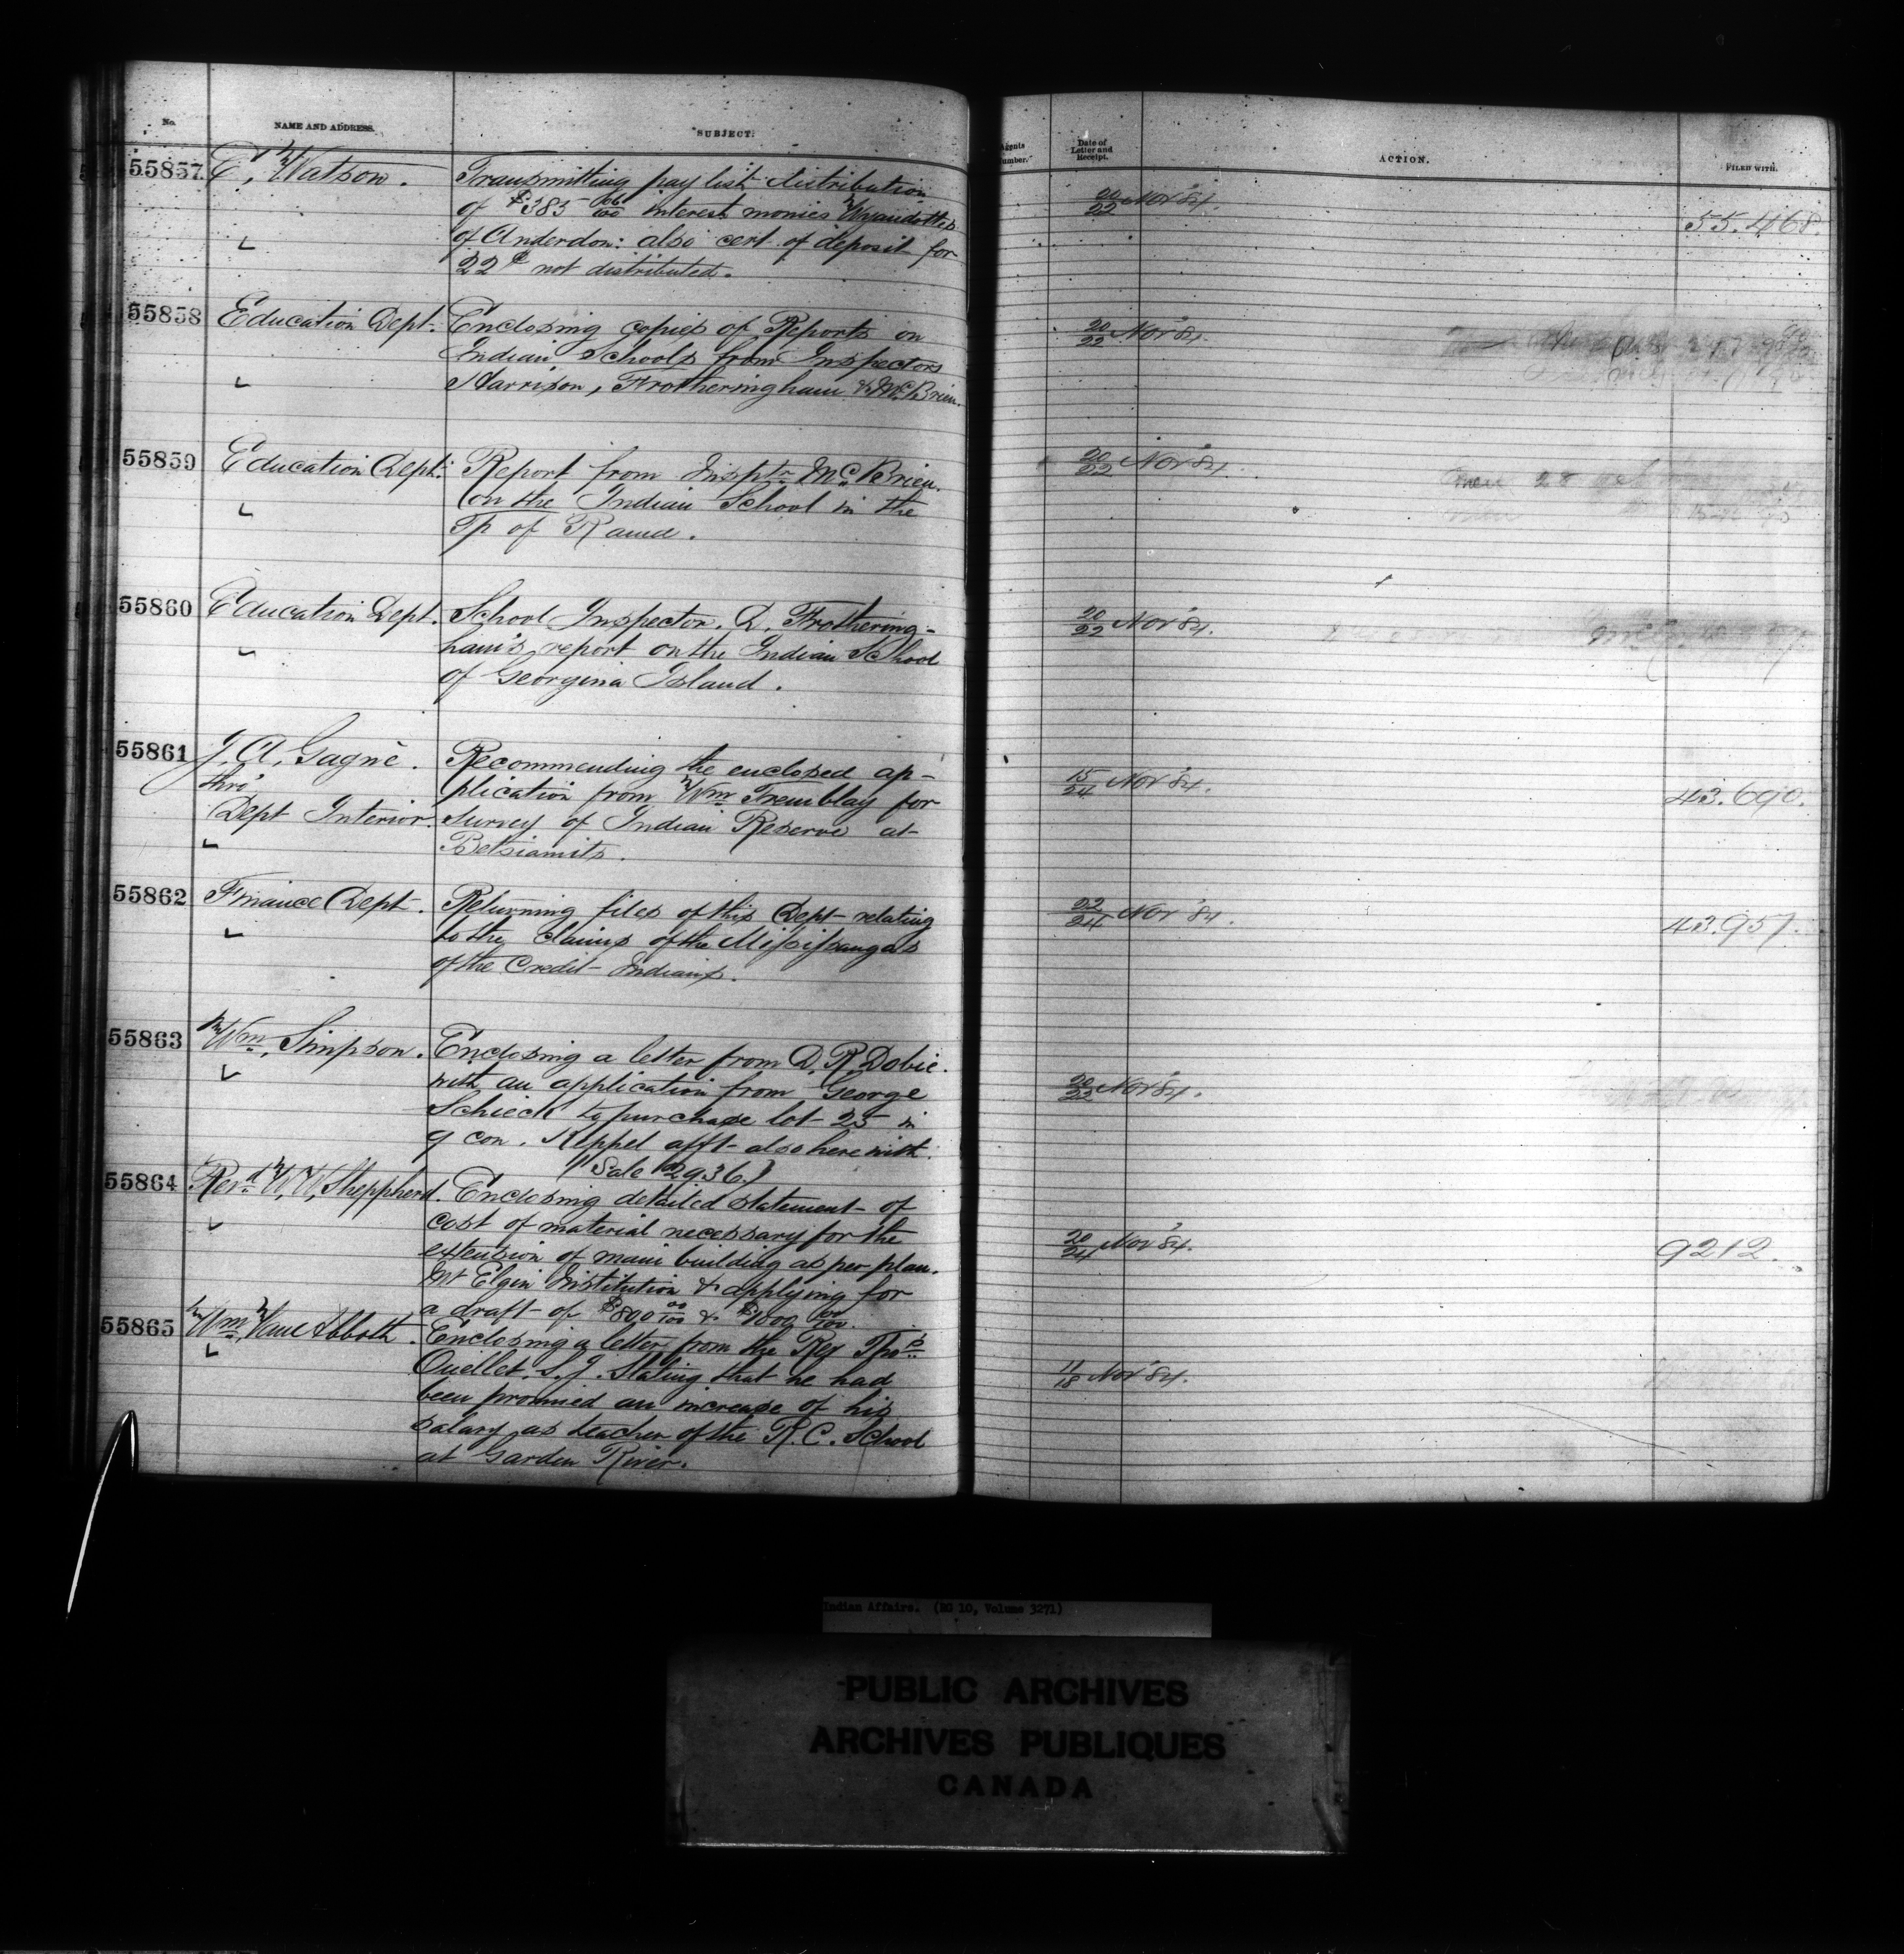 No. NAME AND ADDRESS. SUBJECT. Agents Number. Date of Letter and Receipt. ACTION. FILED WITH.
55857 E, Watson. Transmitting pay list distribution 20/22 Nov '84.
of $385 interest monies Wyandottes 55.468.
of Anderdon: also cert. of deposit for
22¢ not distributed.
55858 Education Dept. Enclosing copies of Reports on 20/22 Nov '84.
Indian Schools from Inspectors
Harrison, Frotheringham & McBrien.
55859 Education Dept. Report from Inspr McBrien. 20/22 Nov '84.
on the Indian School in the
Tp of Rama.
55860 Education Dept. School Inspector. D. Frothering- 20/22 Nov '84.
ham's report on the Indian School
of Georgina Island.
55861 J. A. Gagnè. Recommending the enclosed ap-
thro' plication from Wm Tremblay for 15/24 Nov '84. 43.690.
Dept Interior. Survey of Indian Reserve at
Betsiamits.
55862 Finance Dept. Returning files of this Dept relating 22/24 Nov '84.
to the claims of the Missisaugas 43.957.
of the Credit Indians.
55863 Wm. Simpson. Enclosing a letter from D. R. Dobie.
with an application from George 20/22 Nov '84.
Schieck to purchase lot 25 in
9 con. Keppel afft also herewith.
Sale 2936.
55864 Revd W. W. Shepherd. Enclosing detailed statement of
cost of material necessary for the
extension of main building as per plan. 20/24 Nov '84. 9212.
Mt Elgin Institution & applying for
a draft of $800 00/100 & $1000 00/100.
55865 Wm Van Abbott. Enclosing a letter from the Rev Thos
Ouellet. S. J. Stating that he had 11/18 Nov '84.
been promised an increase of his
salary as teacher of the R. C. School
at Garden River.
Indian Affairs. (RG 10, Volume 3271)
PUBLIC ARCHIVES
ARCHIVES PUBLIQUES
CANADA